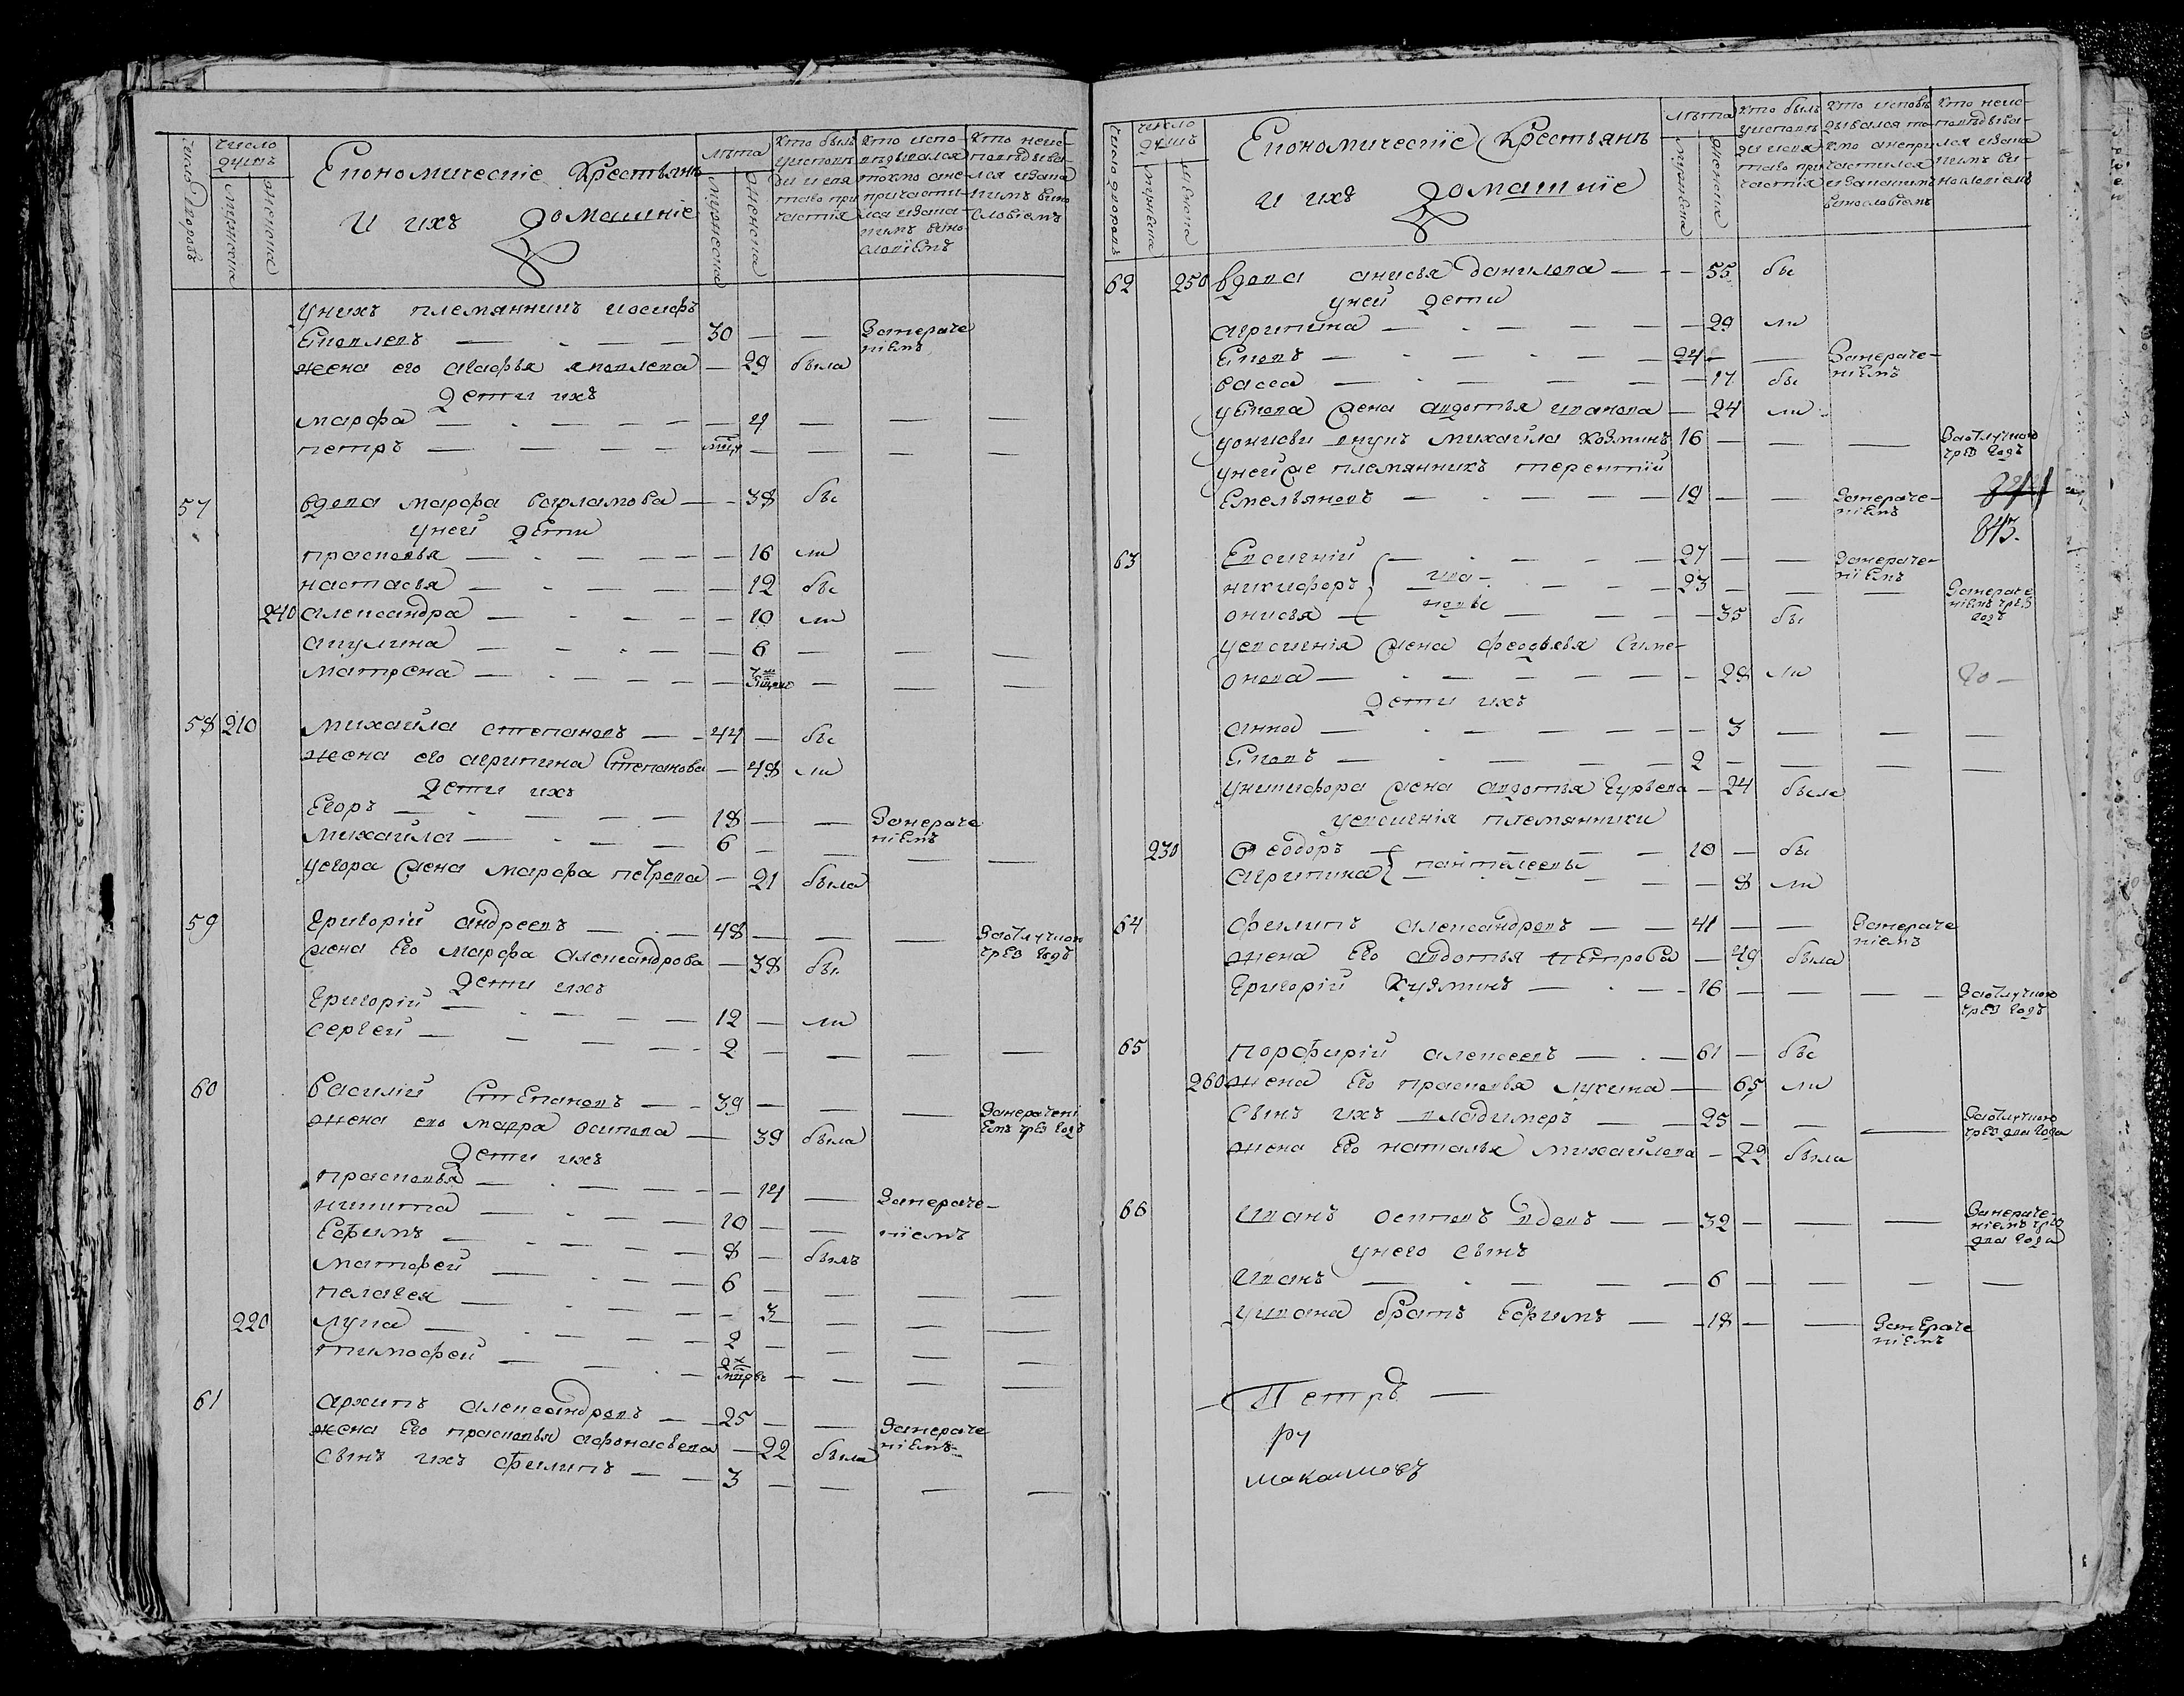 Число дворовъ
Число душъ
мужеска
женска
Економическіе Крестьянъ
и ихъ домашніе
лѣта
мужеска
женска
Кто былъ у исповѣди и святаго причастія
Кто исповѣдывался токмо а не причастился и за какимъ виномъ словіемъ
Кто не исповѣдывался и за какимъ винословіемъ
унихъ племянникъ иосифъ
Яковлевъ — 30 — — Занераче
ніемъ
жена его агафья яковлева — 29 была
дети ихъ
марфа — 4 — — —
петръ — — — — —
57 вдова марфа варламова — 38 бы
уней дети
прасковья — 16 ли
настасья — 12 бы
240 александра — 10 ли
акулина — 6 — — —
матрена — — — —
58 210 Михайла степановъ — 44 — бы
жена его агрипина Степанова — 48 ли
дети ихъ
Егоръ — 18 — — Занераче
Михайла — 6 — — ніемъ —
уегора жена марфа петрова — 21 была
59 Григорій андреевъ — 48 — — — Заотлучкою
жена Его марфа александрова — 38 бы чрез годъ
дети ихъ
Григорій — 12 — ли
сергей — 2 — — — —
60 Василий Степановъ — 39 — — — Занерачені
жена его мавра осипова — 39 была Емъ чрез годъ
дети ихъ
прасковья — 14 — Занераче-
никита — 10 — — ніемъ
Ефимъ — 8 — былъ
матфей — 6 — — — —
пелагея — 3 — — —
220 лука — 2 — — — —
тимофей — — — — —
61 архипъ александровъ — 25 — — Занераче
жена Его прасковья афонасьева — 22 была ніемъ
сынъ ихъ филипъ — 3 — — — —
Число дворовъ
Число душъ
мужеска
женска
Економическіе Крестьянъ
и ихъ домашніе
лѣта
мужеска
женских
Кто былъ у исповѣди и святаго причастія
Кто исповѣдывался токмо а не причастился и за какимъ винословіемъ
Кто не исповѣдывался и за какимъ винословіемъ
62 250 вдова анисья данилова — 55 бы
уней дети
агрипина — 29 ли
Яковъ — 24 — — Занераче-
васса — 17 бы ніемъ
уякова жена авдотья иванова — 24 ли
уонисьи внукъ михайла козминъ 16 — — — Заотлучкою
чрез годъ
унейже племянникъ терентій
Емельяновъ — 19 — — Занераче-
ніемъ
843.
63 Евсигній — 27 — — Занераче-
никифоръ ива- — 23 — — ніемъ — Занераче
онисья новы — 35 бы ніемъ чрез
годъ
уевсигнія жена федосья Симе-
онова — 29 ли
дети ихъ
анна — 3 — — —
Яковъ — 2 — — — —
уникифора жена авдотья Гурьева — 24 была
уевсигнія племянники
230 Феодоръ — 10 — бы
агрипина пантелеевы — 8 ли
64 филипъ александровъ — 41 — — Занераче
ніемъ
жена Его авдотья пЕтрова — 49 была
Григорій Кузминъ — 16 — — — Заотлучкою
чрез годъ
65 порфирій алексеевъ — 61 — бы
260 жена Его прасковья лукина — 65 ли
сынъ ихъ владимеръ — 25 — — — Заотлучкою
чрез два года
жена Его наталья михайлова — 22 была
66 Иванъ осиповъ вдовъ — 32 — — — Занераче-
ніемъ чрез
два года
унего сынъ
Иванъ — 6 — — — —
уивана братъ Ефимъ — 18 — — Занераче
ніемъ
Петръ —
ру